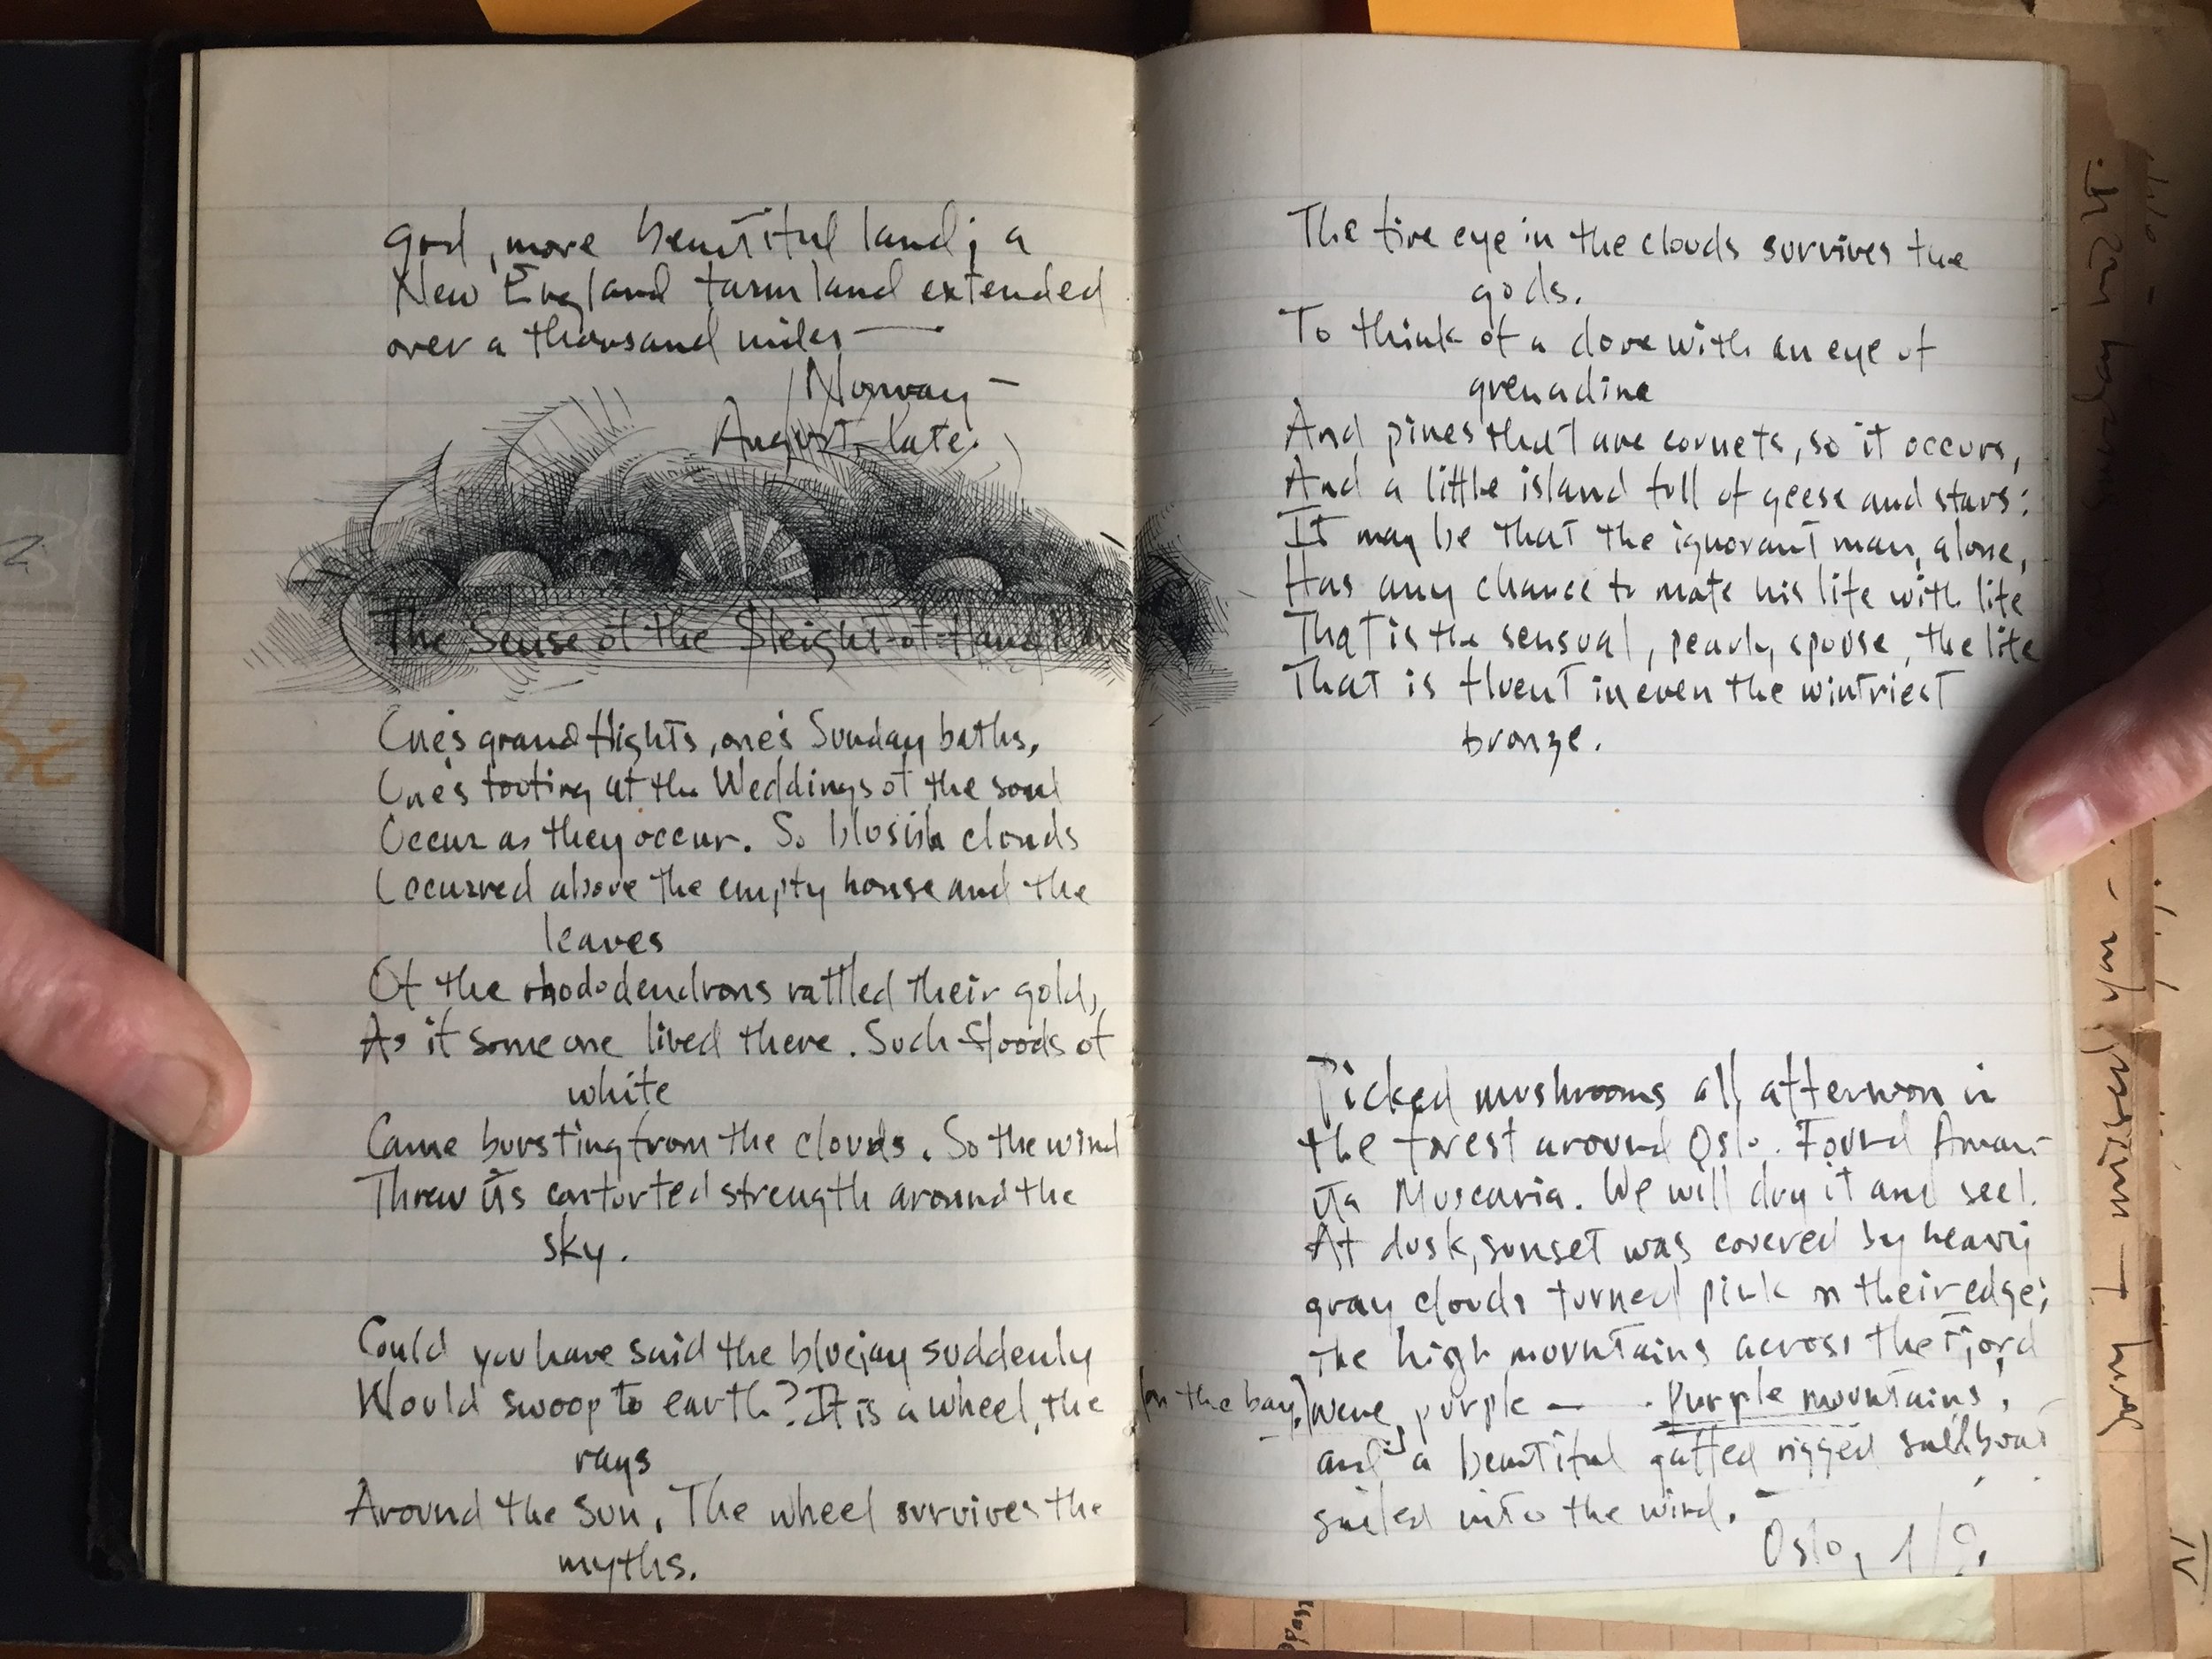 god, more beautiful land; a
New England farmland extended
over a thousand miles —
Norway —
August, late.
The Sense of the Sleight-of-Hand Man
One's grand flights, one's Sunday baths,
One's tooting at the Weddings of the soul
Occur as they occur. So bluish clouds
Occurred above the empty house and the
leaves
Of the rhododendrons rattled their gold,
As if someone lived there. Such floods of
white
Came bursting from the clouds. So the wind
Threw its contorted strength around the
sky.
Could you have said the bluejay suddenly
Would swoop to earth? It is a wheel, the
rays
Around the sun. The wheel survives the
myths.
The fire eye in the clouds survives the
gods.
To think of a dove with an eye of
grenadine
And pines that are cornets, so it occurs,
And a little island full of geese and stars:
It may be that the ignorant man, alone,
Has any chance to mate his life with life
That is the sensual, pearly spouse, the life
That is fluent in even the wintriest
bronze.
Picked mushrooms all afternoon in
the forest around Oslo. Found Aman-
ita Muscaria. We will dry it and see!
At dusk, sunset was covered by heavy
gray clouds turned pink on their edge;
the high mountains across the Fjord
(on the bay,) were purple — Purple mountains,
and a beautiful gaffed rigged sailboat
sailed into the wind.
Oslo, 1/9.
missed you -
IV